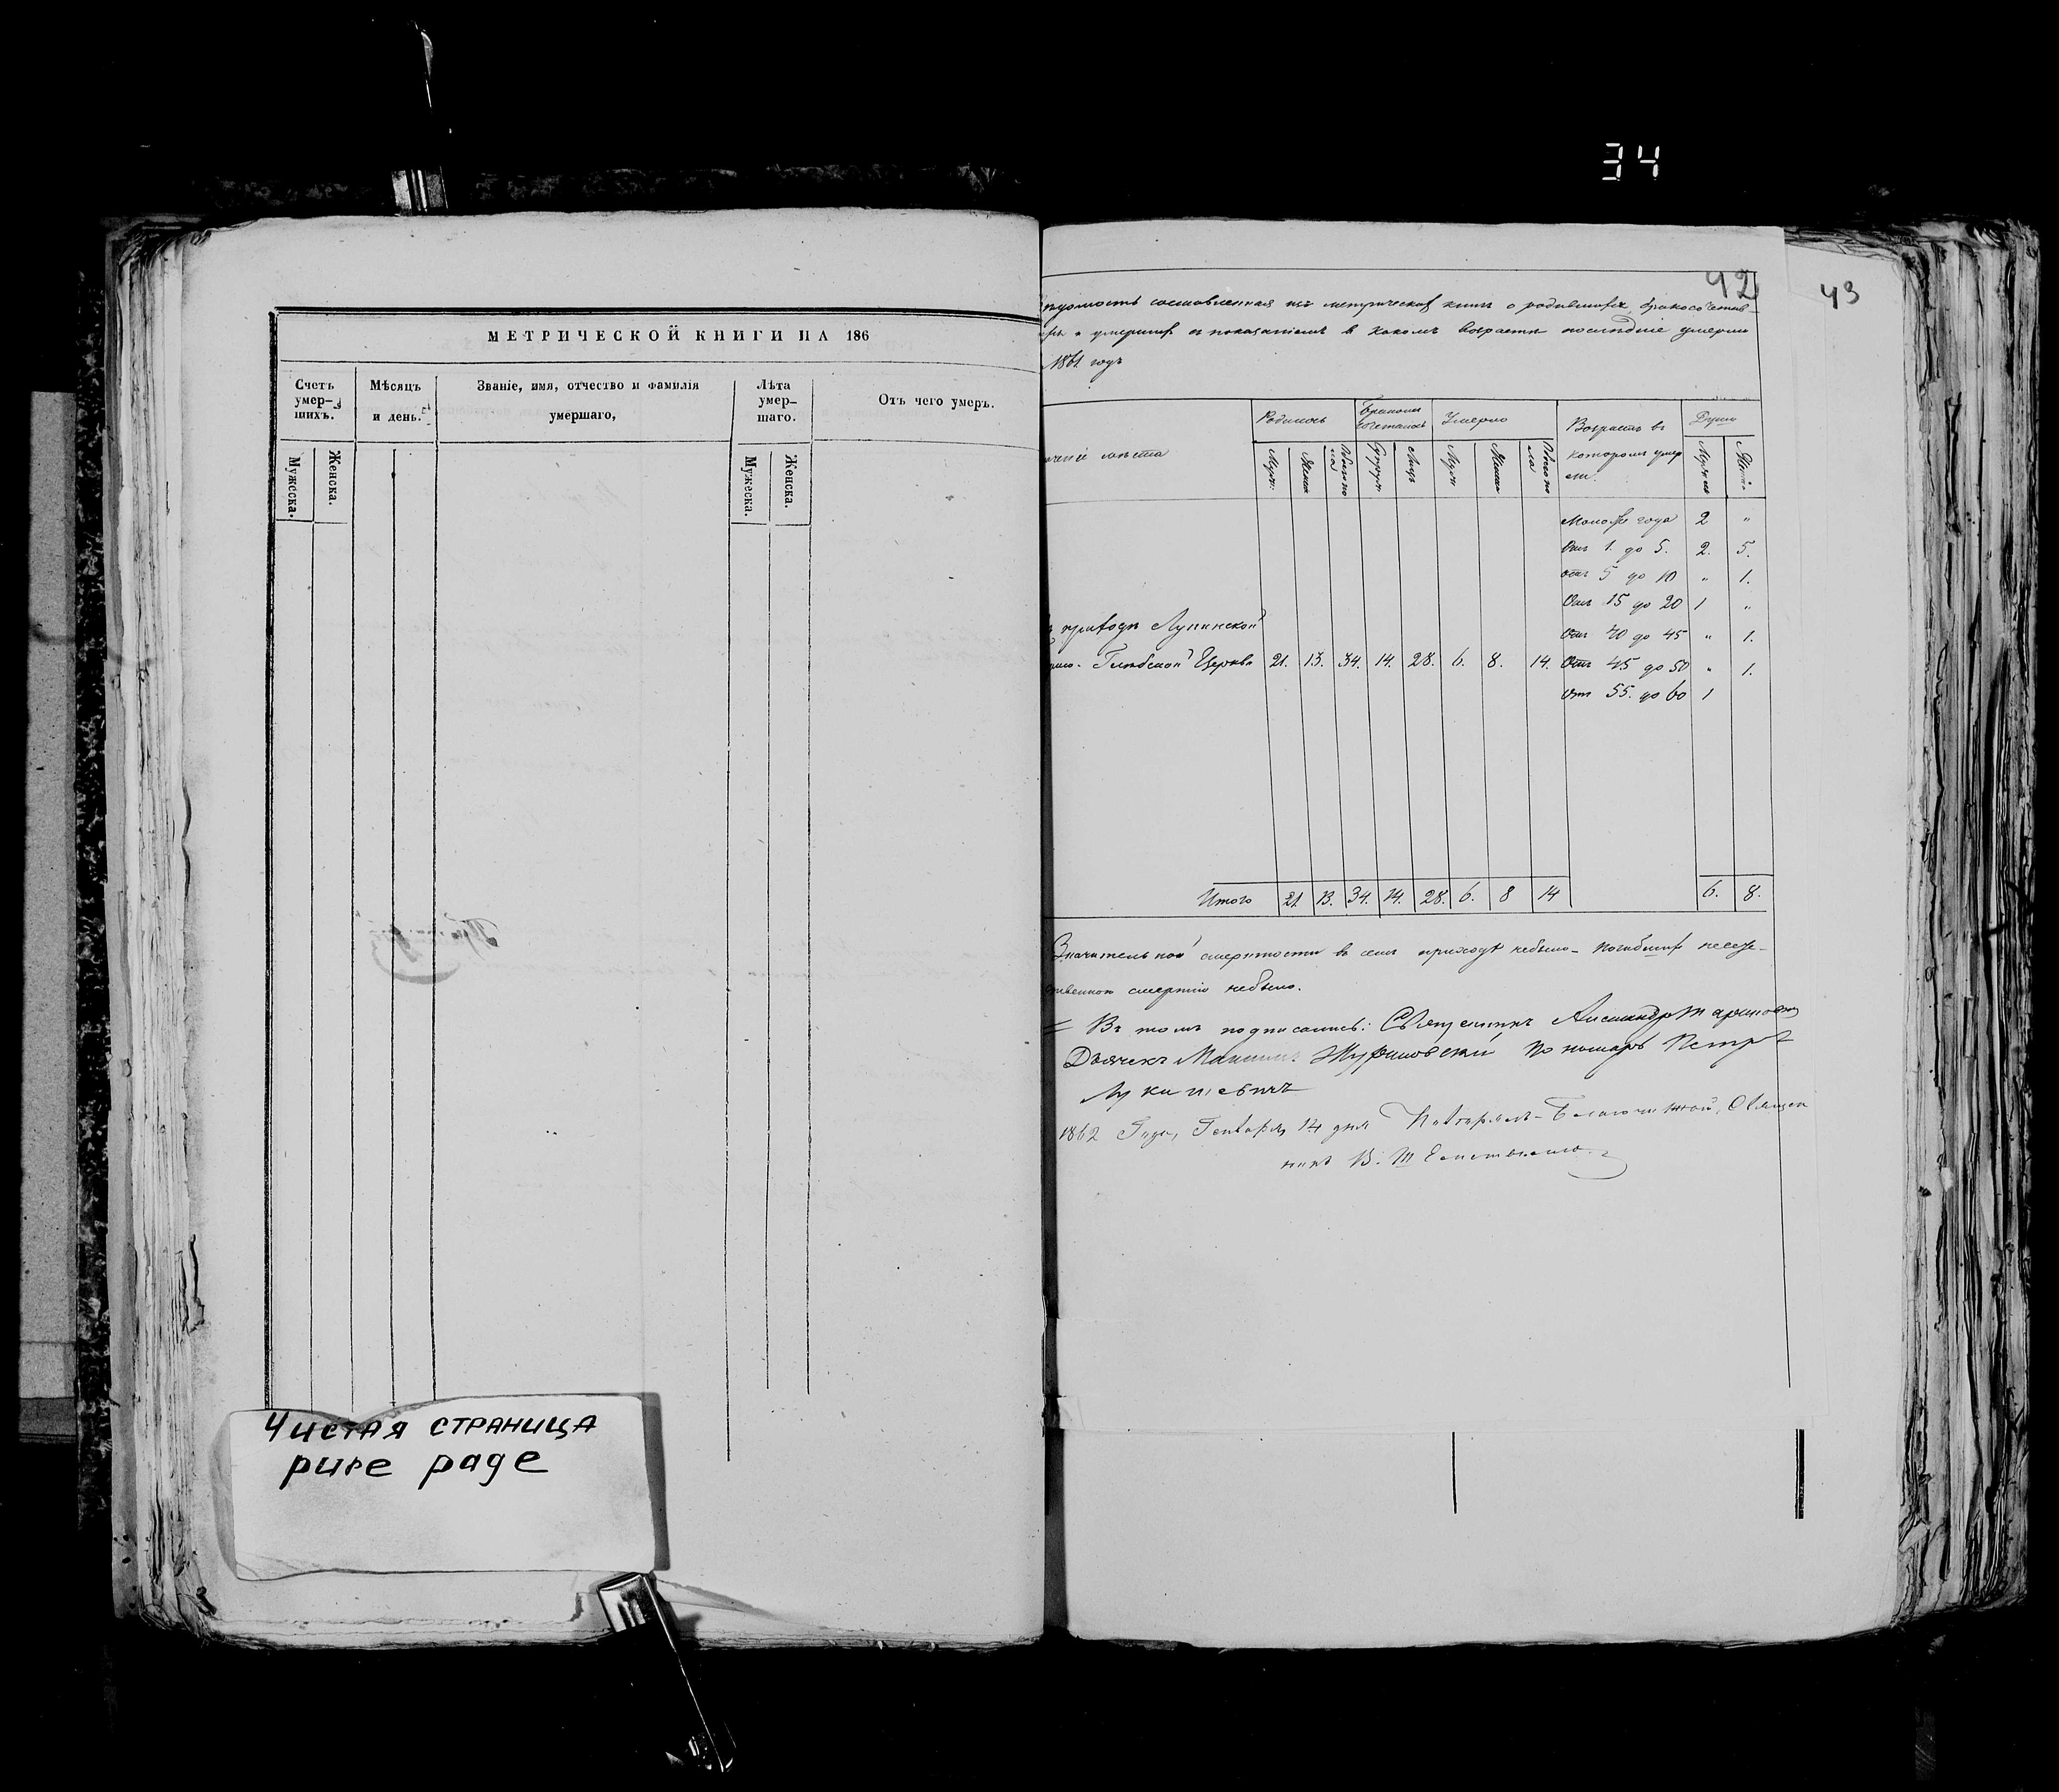 34
МЕТРИЧЕСКОЙ КНИГИ НА 186
Счетъ умер-шихъ.
Мѣсяцъ и день.
Званіе, имя, отчество и фамилія умершаго,
Лѣта умер-шаго.
Отъ чего умеръ.
Мужеска.
Женска.
Мужеска.
Женска.
Чистая страница
pure page
42
43
составленная изъ метрической книги о родившихся, бракосочетав-
и умершихъ съ показаніемъ въ какомъ возрастѣ послѣдніе умерли
1861 годъ
мѣста
Родилось
Бракомъ сочеталось
Умерло
Возрастъ въ которомъ умерли
Душъ
Моложе года 2 "
Отъ 1. до 5. 2. 5.
отъ 5 до 10 " 1.
Отъ 15 до 20 1 "
приходѣ Лунинской
Отъ 40 до 45 " 1.
Глѣбской Церкви 21. 13. 34. 14. 28. 6. 8. 14. Отъ 45 до 50 " 1.
Отъ 55. до 60 1
Итого 21 13. 34. 14. 28. 6. 8 14 6. 8.
Значительной смертности въ семъ приходѣ небыло - погибшихъ несте-
ственною смертію небыло.
Въ томъ подписались: Священникъ
Дьячекъ Пономарь Петръ
Лукашевичъ
1862 Года, Генваря, 14 дня Священ
никъ В.